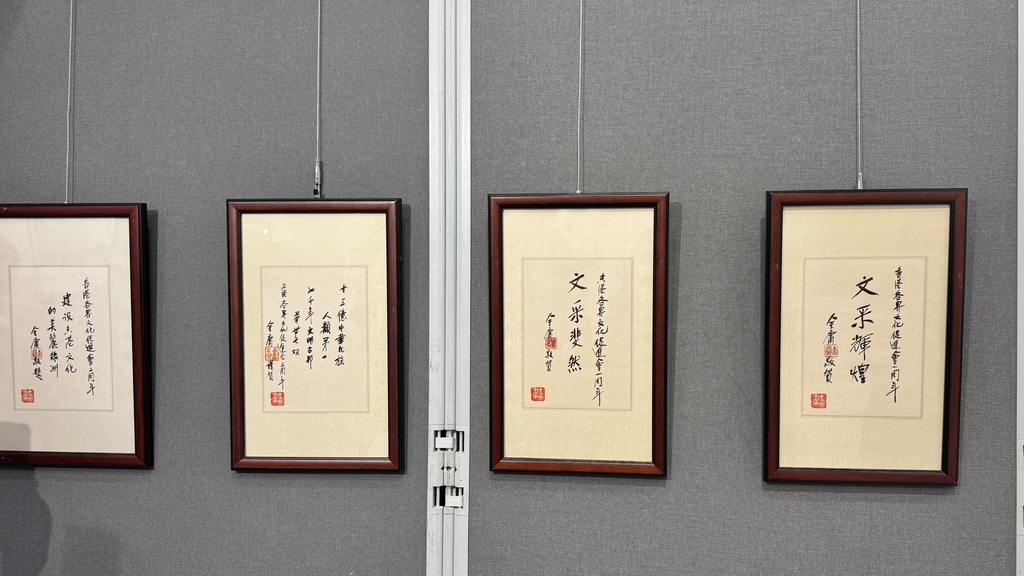 香港各界文化促進會二周年
建設香港文化
的美麗綠洲
金庸敬題
十三億中華民族
人類第一
七千年文明古邦
舉世無双
香港各界文化促進會二周年
金庸謹賀
香港各界文化促進會一周年
文采斐然
金庸敬賀
香港各界文化促進會一周年
文采輝煌
金庸敬賀